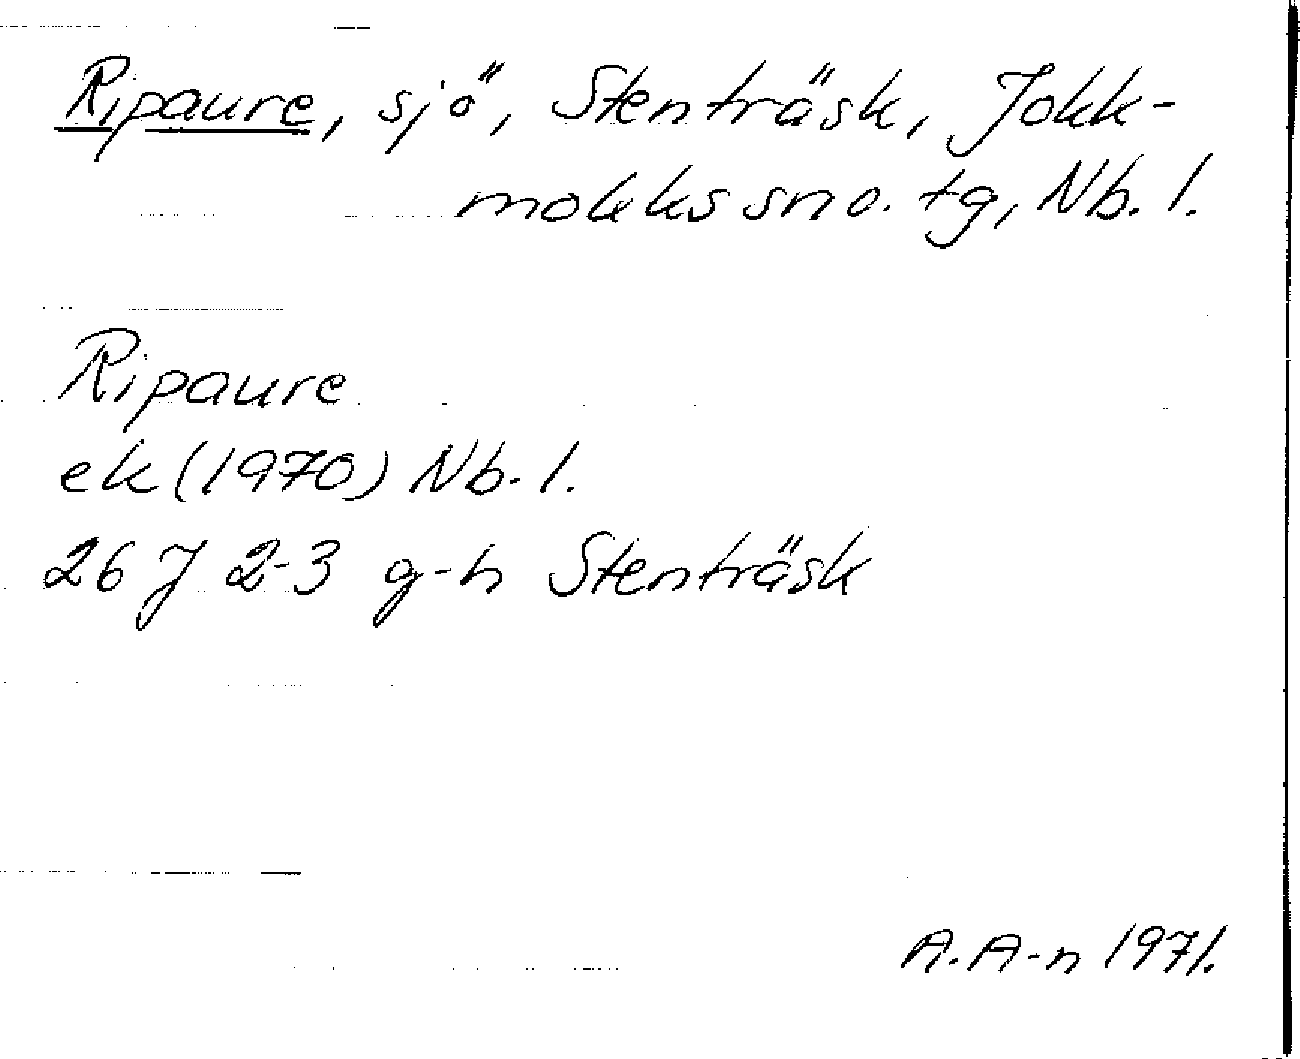 Ripaure, sjö, Stenträsk, Jokk-
mokks sno. tg, Nb. l.
Ripaure
ek (1970) Nb. l.
26 J 2-3 g-h Stenträsk
A. A-n 1971.